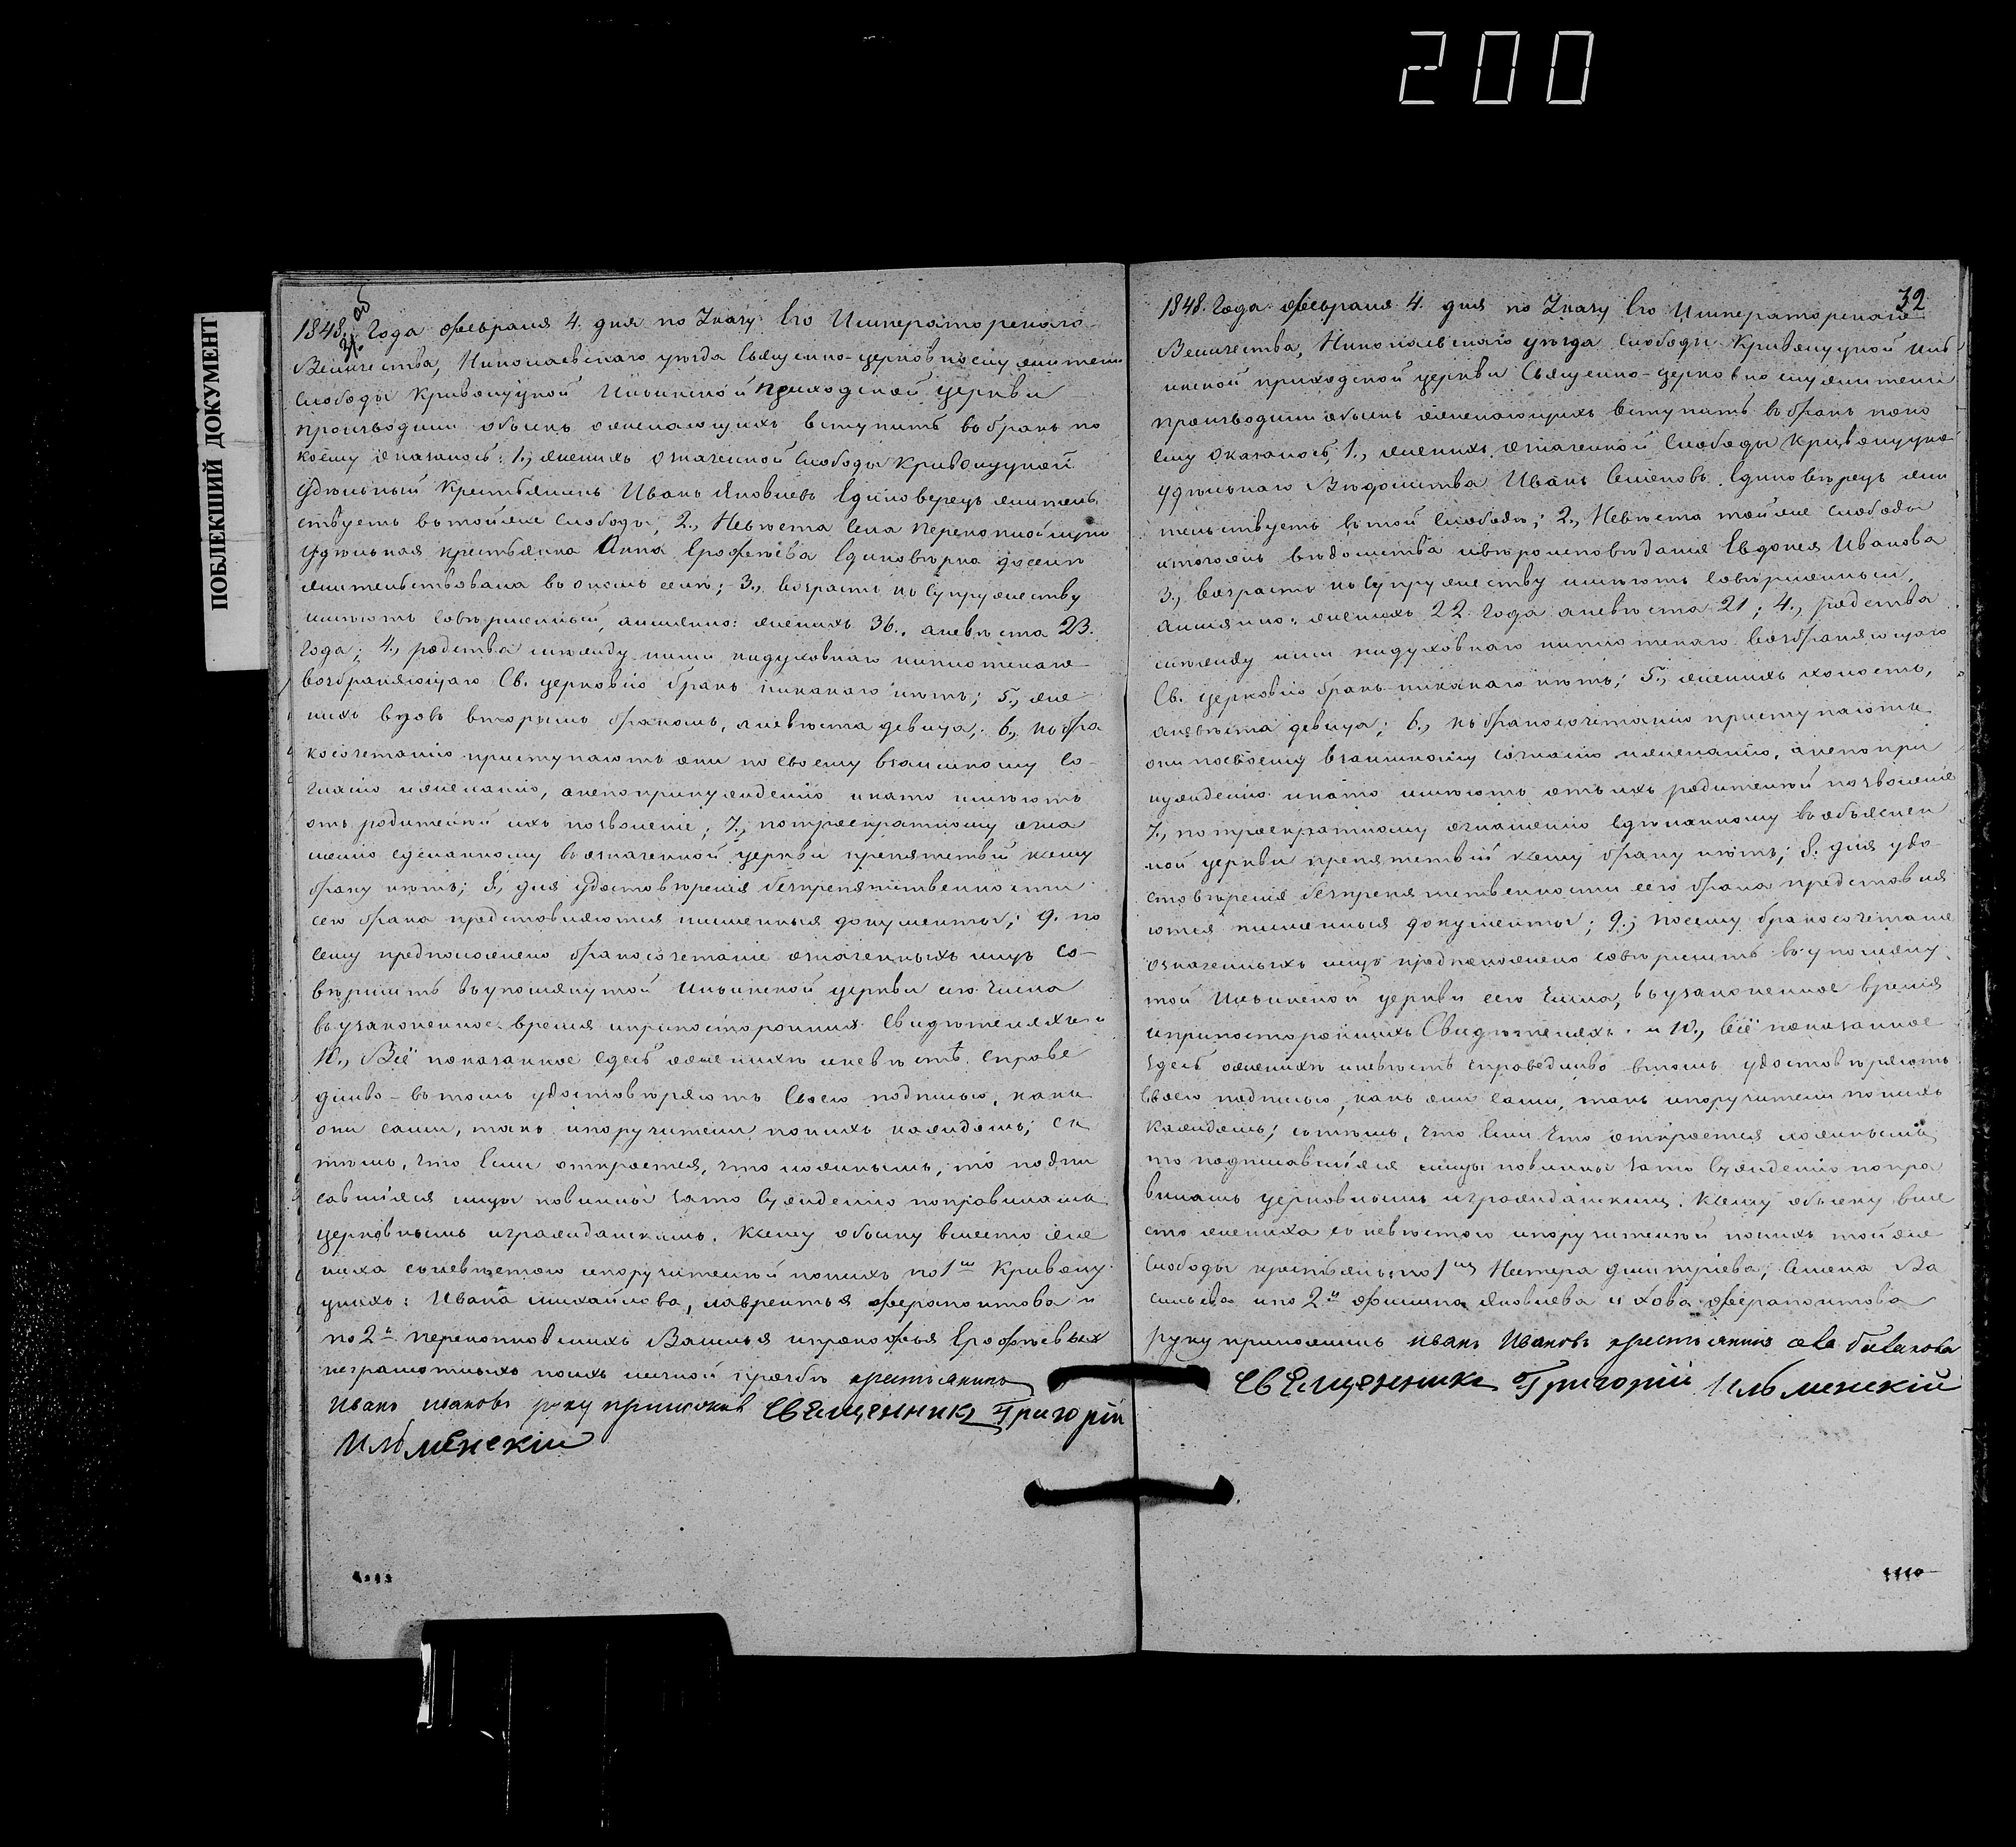 200
ПОБЛЕКШИЙ ДОКУМЕНТ
31. об
1848. Года февраля 4. дня по Указу Его Императорскаго
Величества, Николаевскаго уезда Священно-церковнослужители
слободы Криволуцкой Ильинской приходской церкви
производили обыскъ желающихъ вступить въ бракъ по
коему оказалось: 1., женихъ означенной слободы Криволуцкой
Удѣльный Крестьянинъ Иванъ Яковлевъ Единоверецъ житель
ствуетъ въ той же слободы; 2., Невѣста села Перекопной луки
Удѣльная крестьянка Анна Ерофѣева Единовѣрка доселѣ
жительствовала въ ономъ селѣ; 3., возрастъ къ супружеству
имѣютъ совѣршенный, аимянно: женихъ 36., аневѣста 23.
года; 4., родства между ними нидуховнаго ниплотскаго
возбраняющаго Св. церковію бракъ никакаго нѣтъ; 5., же
нихъ вдовъ вторымъ бракомъ, аневѣста девица; 6., къ бра
косочетанію приступаютъ они по своему взаимному со-
гласію ижеланію, анепопринужденію инато имѣютъ
отъ родителей ихъ позволеніе; 7., потроекратному огла
шению сделанному въ означенной церкви препятствій ксему
браку нѣтъ; 8., для удостовѣренія безпрепятственности
сего брака представляются письменныя документы; 9. по
сему предположено бракосочетаніе означенныхъ лицъ со-
вѣршить въ упомянутой Ильинской церкви сего числа
въ узаконенное время ипри постороннихъ свидѣтеляхъ и
10., Всё показанное сдесь о женихѣ и невѣстѣ справе
дливо - въ томъ удостовѣряютъ своею подписью, какъ
они сами, такъ и поручители по нихъ каждомъ; съ
тѣмъ, что Если откроется, что ложнымъ, то подпи
савшіяся лицы повинны зато сужденію поправиламъ
церковнымъ игражданскимъ. Ксему обыску вместо же
ниха съ невѣстою и поручителей по нихъ по 1мъ Кривому
цкихъ: Ивана Михайлова, Лаврентья Ферапонтова и
по 2й Перекопновскихъ Василья ипрокофья Ерофѣевых
неграмотныхъ по ихъ личной прозбѣ крестьянинъ
Иванъ Ивановъ руку приложилъ Священникъ Григорій
Ильменскій
32
1848. Года февраля 4. дня по Указу Его Императорскаго
Величества, Николаевскаго уѣзда слободы Криволуцкой Иль
инской приходской церкви Священно-церковнослужители
производили обыскъ желающихъ вступить въ бракъ по ко
ему оказалось, 1., женихъ означенной слободы Криволуцко
удѣльнаго Вѣдомства Иванъ Семеновъ Единовѣрецъ жи
тельствуетъ въ той слободѣ; 2., Невѣста той же слободы
итогожъ вѣдомства ивѣроисповѣданія Евдокея Иванова
3., возрастъ къ супружеству имѣютъ совѣршенный,
аимянно: женихъ 22 года аневѣста 21; 4., родства
между ими нидуховнаго ниплотскаго возбраняющаго
Св. церковію бракъ никакаго нѣтъ; 5., женихъ холостъ,
аневѣста девица; 6., къ бракосочетанію приступаютъ
они посвоему взаимному согласію ижеланію, анепопри
нужденію инато имѣютъ отъ ихъ родителей позволеніе
7., потроекратному оглашенію сдѣланному въ объяснен
ной церкви препятствій ксему браку нѣтъ; 8. для удо-
стовѣренія безпрепятственности сего брака представля
ются письменныя документы; 9., посему бракосочетаніе
означенныхъ лицъ предположено совѣршить въ упомяну
той Ильинской церкви сего числа, въ узаконенное время
ипри постороннихъ Свидѣтеляхъ. и 10., Всё показанное
здесь о женихѣ и невѣстѣ справедливо въ томъ удостовѣряютъ
своею подписью, какъ они сами, такъ и поручители по нихъ
каждомъ; стѣмъ, что Если что откроется ложнымъ
то подписавшіяся лицы повинны зато сужденію попра
виламъ церковнымъ игражданскимъ. Ксему обыску вме
сто жениха съ невѣстою ипоручителей по нихъ той же
слободы крестьянъ по 1мъ Нестера Дмитріева, Семена Ва
сильева ипо 2й Филипа Яковлева и Ферапонтова
руку приложилъ Иванъ Ивановъ крестьянинъ
Священникъ Григорій Ильменскій